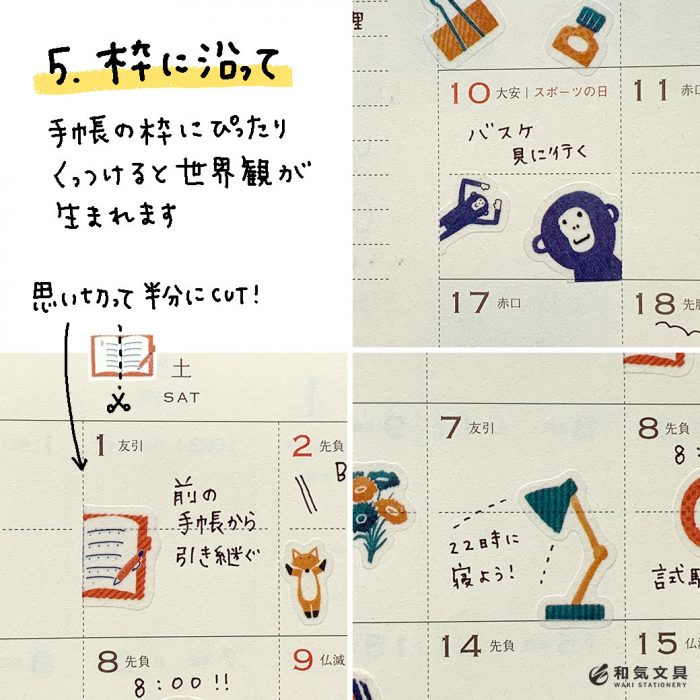 5. 枠に沿って
手帳の枠にぴったり
くっつけると世界観が
生まれます
思い切って半分にCUT!
土
SAT
1 友引
2 先負
前の
手帳から
引き継ぐ
8 先負
8:00!!
9 仏滅
理
10 大安 | スポーツの日
11 赤口
バスケ
見に行く
17 赤口
18 先勝
7 友引
8 先負
8:
22時に
寝よう!
試験
14 先負
15 仏滅
和気文具
WAKI STATIONERY